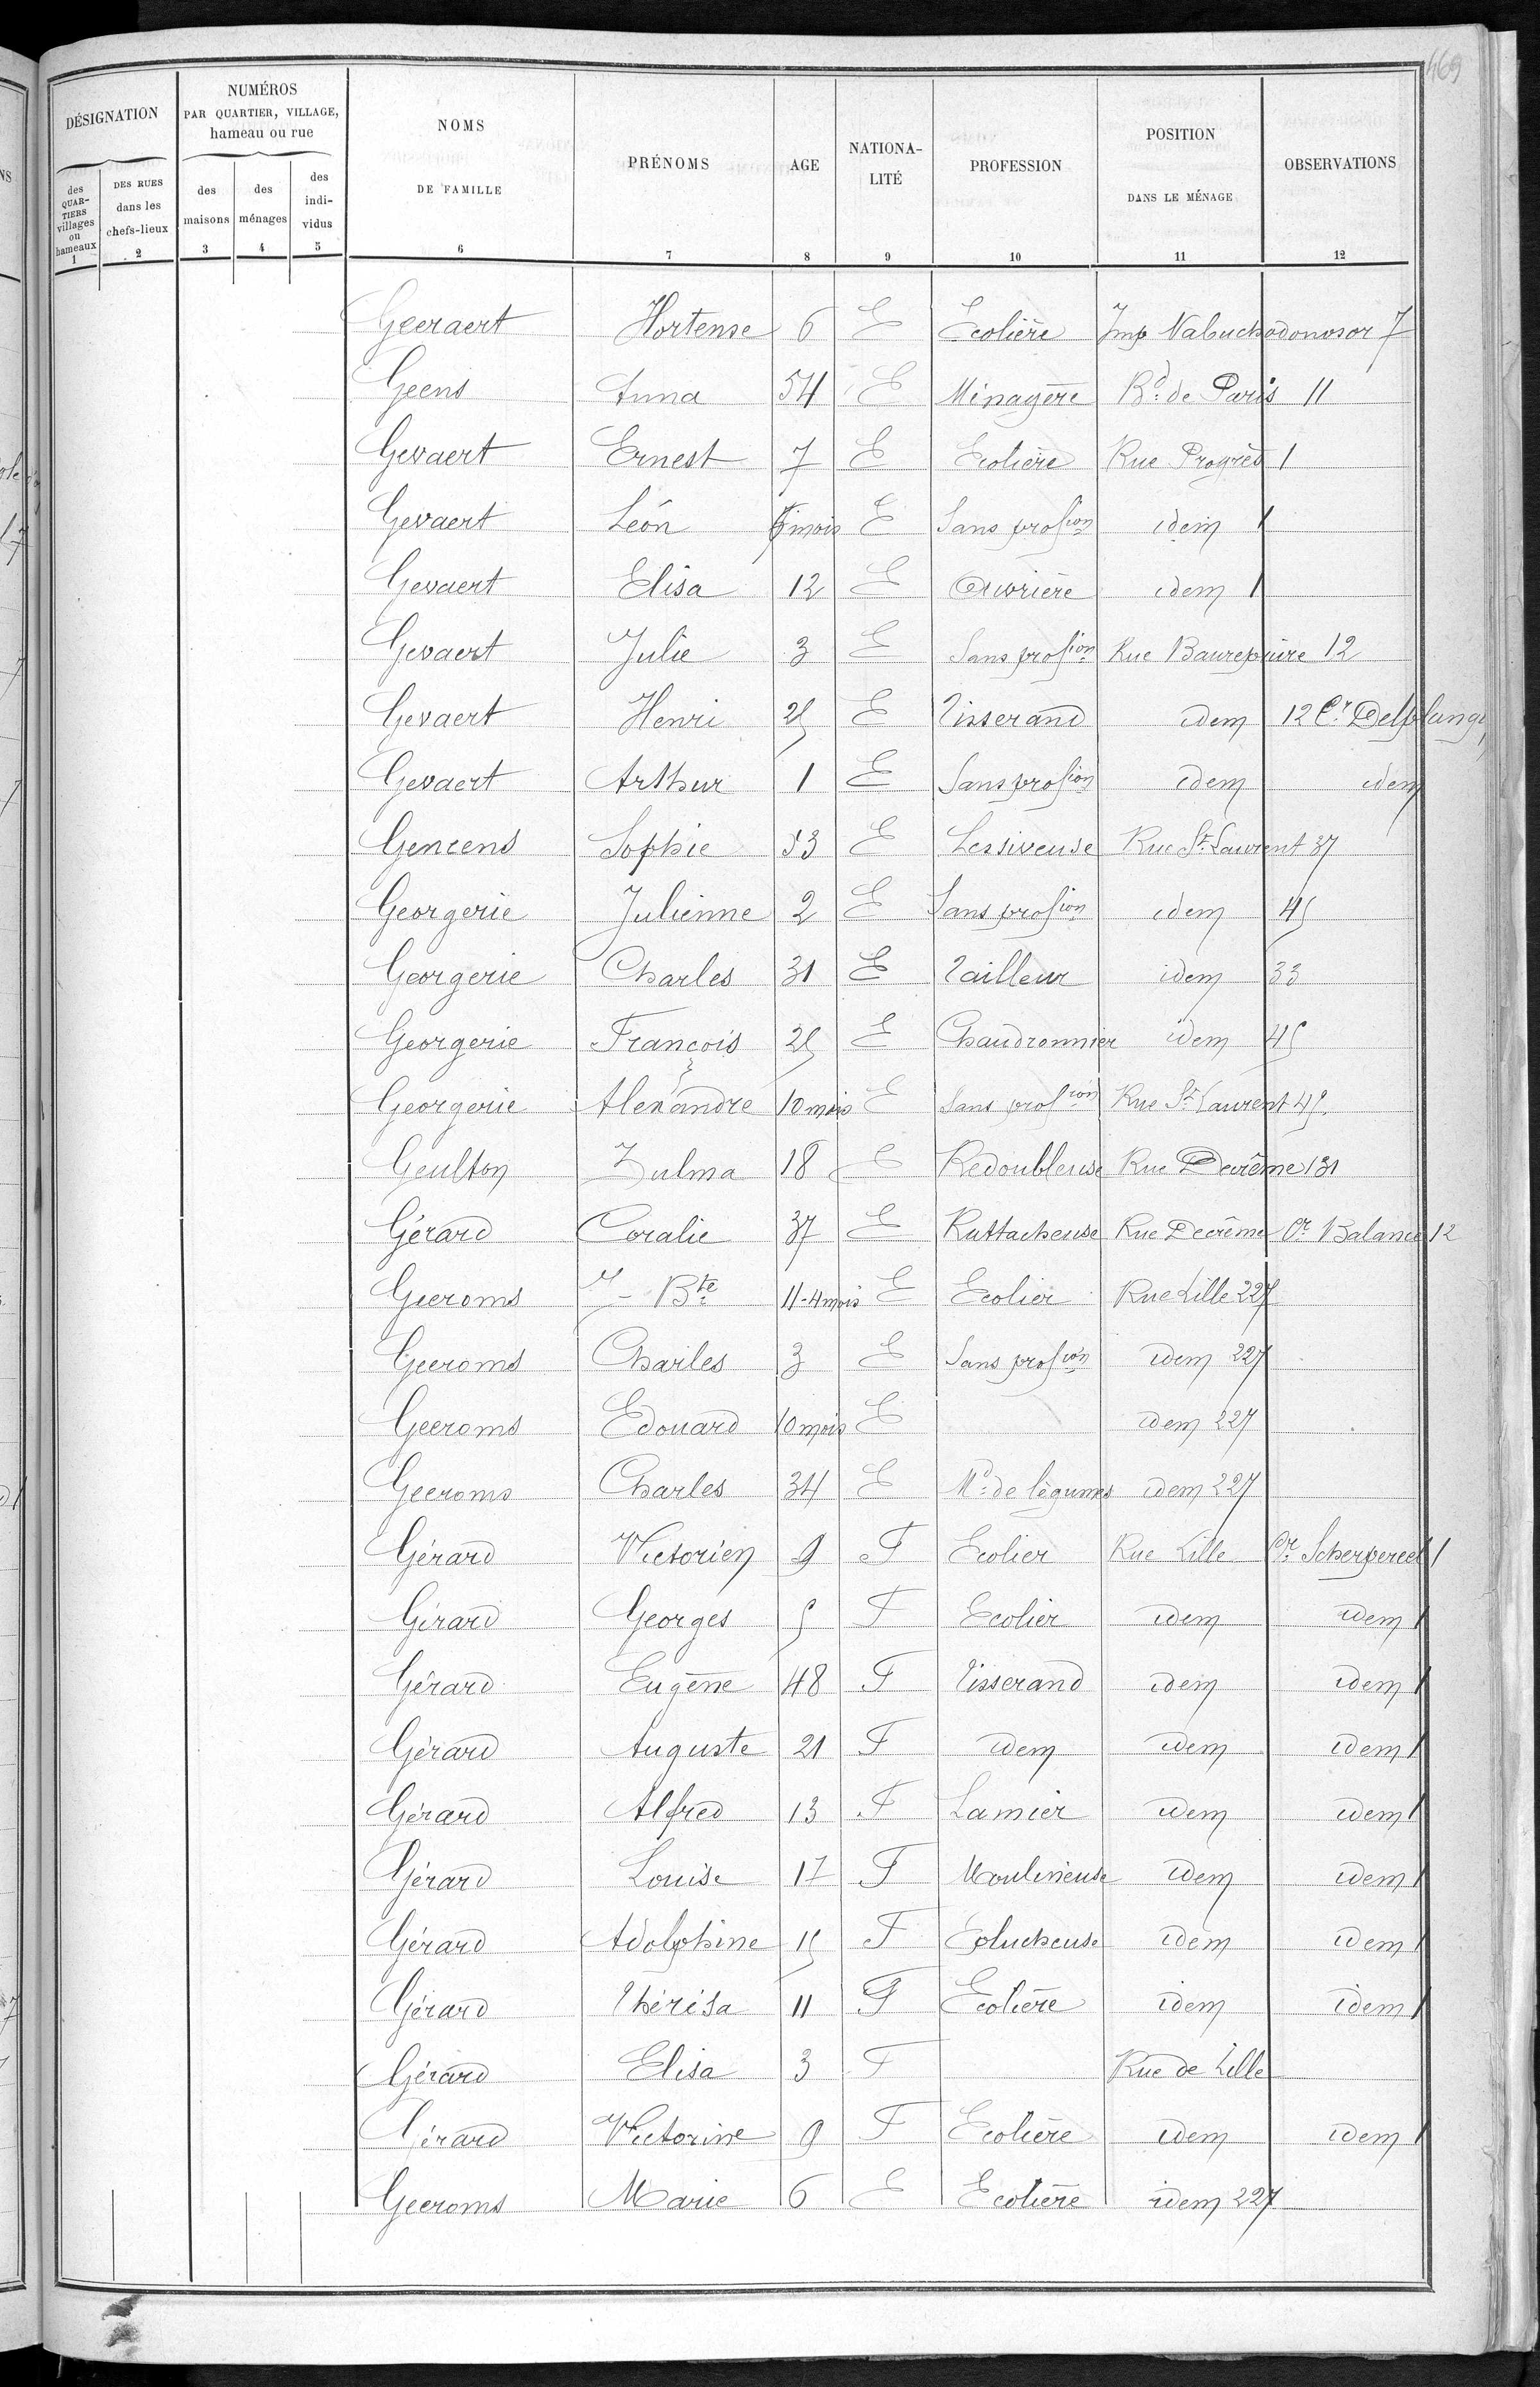 469
DÉSIGNATION
NUMÉROS
PAR QUARTIER, VILLAGE,
hameau ou rue
NOMS
DE FAMILLE
PRÉNOMS
AGE
NATIONA-
LITÉ
PROFESSION
POSITION
DANS LE MÉNAGE
OBSERVATIONS
des QUAR-TIERS villages ou hameaux
DES RUES dans les chefs-lieux
des maisons
des ménages
des indi-vidus
1 2 3 4 5 6 7 8 9 10 11 12
Geeraert Hortense 6 E Ecolière Imp Nabuchodonosor 7
Geens Anna 54 E Ménagère Bd. de Paris 11
Gevaert Ernest 7 E Ecolière Rue Progrès 1
Gevaert Léon mois E Sans profion idem 1
Gevaert Elisa 12 E Ouvrière idem 1
Gevaert Julie 3 E Sans profion Rue Baurepaire 12
Gevaert Henri 25 E Tisserand idem 12 Cr Delplanq
Gevaert Arthur 1 E Sans profion idem idem
Gencens Sophie 53 E Lessiveuse Rue St. Laurent 37
Georgerie Julienne 2 E Sans profion idem 45
Georgerie Charles 31 E Tailleur idem 33
Georgerie François 25 E Chaudronnier idem 45
Georgerie Alexandre 10 mois E Sans profion Rue St. Laurent 45.
Geulton Zulma 18 E Redoubleuse Rue Decrême 131
Gérard Coralie 37 E Rattacheuse Rue Decrême Cr Balance 12
Geeroms J-Bte 11-4 mois E Ecolier Rue Lille 227
Geeroms Charles 3 E Sans profion idem 227
Geeroms Edouard 10 mois E idem 227
Geeroms Charles 34 E Md. de légumes idem 227
Gérard Victorien 9 F Ecolier Rue Lille Cr. Scherpereel 1
Gérard Georges 5 F Ecolier idem idem 1
Gérard Eugène 48 F Tisserand idem idem 1
Gérard Auguste 21 F idem idem idem 1
Gérard Alfred 13 F Lamier idem idem 1
Gérard Louise 17 F Moulineuse idem idem 1
Gérard Adolphine 15 F Eplucheuse idem idem 1
Gérard Thérisa 11 F Ecolière idem idem 1
Gérard Elisa 3 F Rue de Lille
Gérard Victorine 9 F Ecolière idem idem 1
Geeroms Marie 6 E Ecolière idem 227